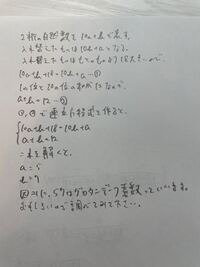 2桁の自然数を10a+bと表す。
入れ替えたものは10b+aとなる。
入れ替えたものはもとのものより18大きいので、
10a+b+18=10b+a…①
一の位と10の位の和が12なので
a+b=12…②
①,②で連立方程式を作ると、
10a+b+18=10b+a
a+b=12
これを解くと、
a=5
b=7
因みに、57はグロタンディーク素数っていいます。
おもしろいので調べてみて下さい。